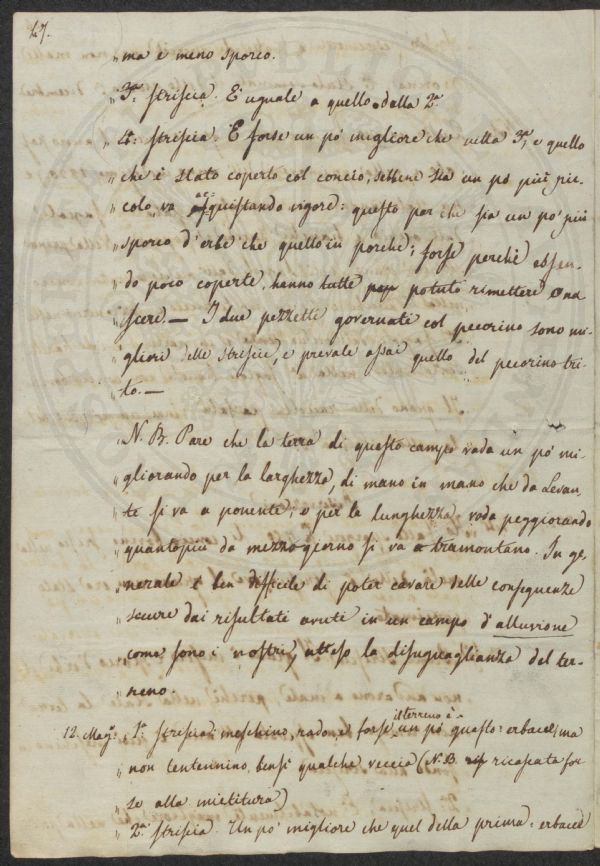 47.
„ ma è meno sporco.
„ 3ª striscia. E' uguale a quello della 2ª
„ 4ª striscia. E forse un pò migliore che nella 3ª, e quello
„ che è stato coperto col concio, sebbene sia un pò più pic-
„ colo, va acquistando vigore: questo par che sia un pò più
„ sporco d'erbe che quello in porche; forse perchè essen-
„ do poco coperte, hanno tutte potuto rimettere o na
„ scere. — I due pezzetti governati col pecorino sono mi-
„ gliori delle striscie, e prevale assai quello del pecorino tri-
„ to. —
„ N.B. Pare che la terra di questo campo vada un pò mi-
„ gliorando per la larghezza, di mano in mano che da Levan-
„ te si va a ponente; e per la lunghezza vada peggiorando
„ quanto più da mezzogiorno si va a tramontano. In ge-
„ nerale è ben difficile di poter cavare delle conseguenze
„ sicure dai risultati avuti in un campo d'alluvione
„ come sono i nostri, atteso la disuguaglianza del ter-
„ reno.
il terreno è
12. Magº. „ 1ª striscia: meschino, rado, e forse un pò guasto: erbacce, ma
„ non tentennino, bensì qualche veccia (N.B. ricascata for
„ se alla mietitura)
„ 2ª striscia. Un pò migliore che quel della prima: erbacce